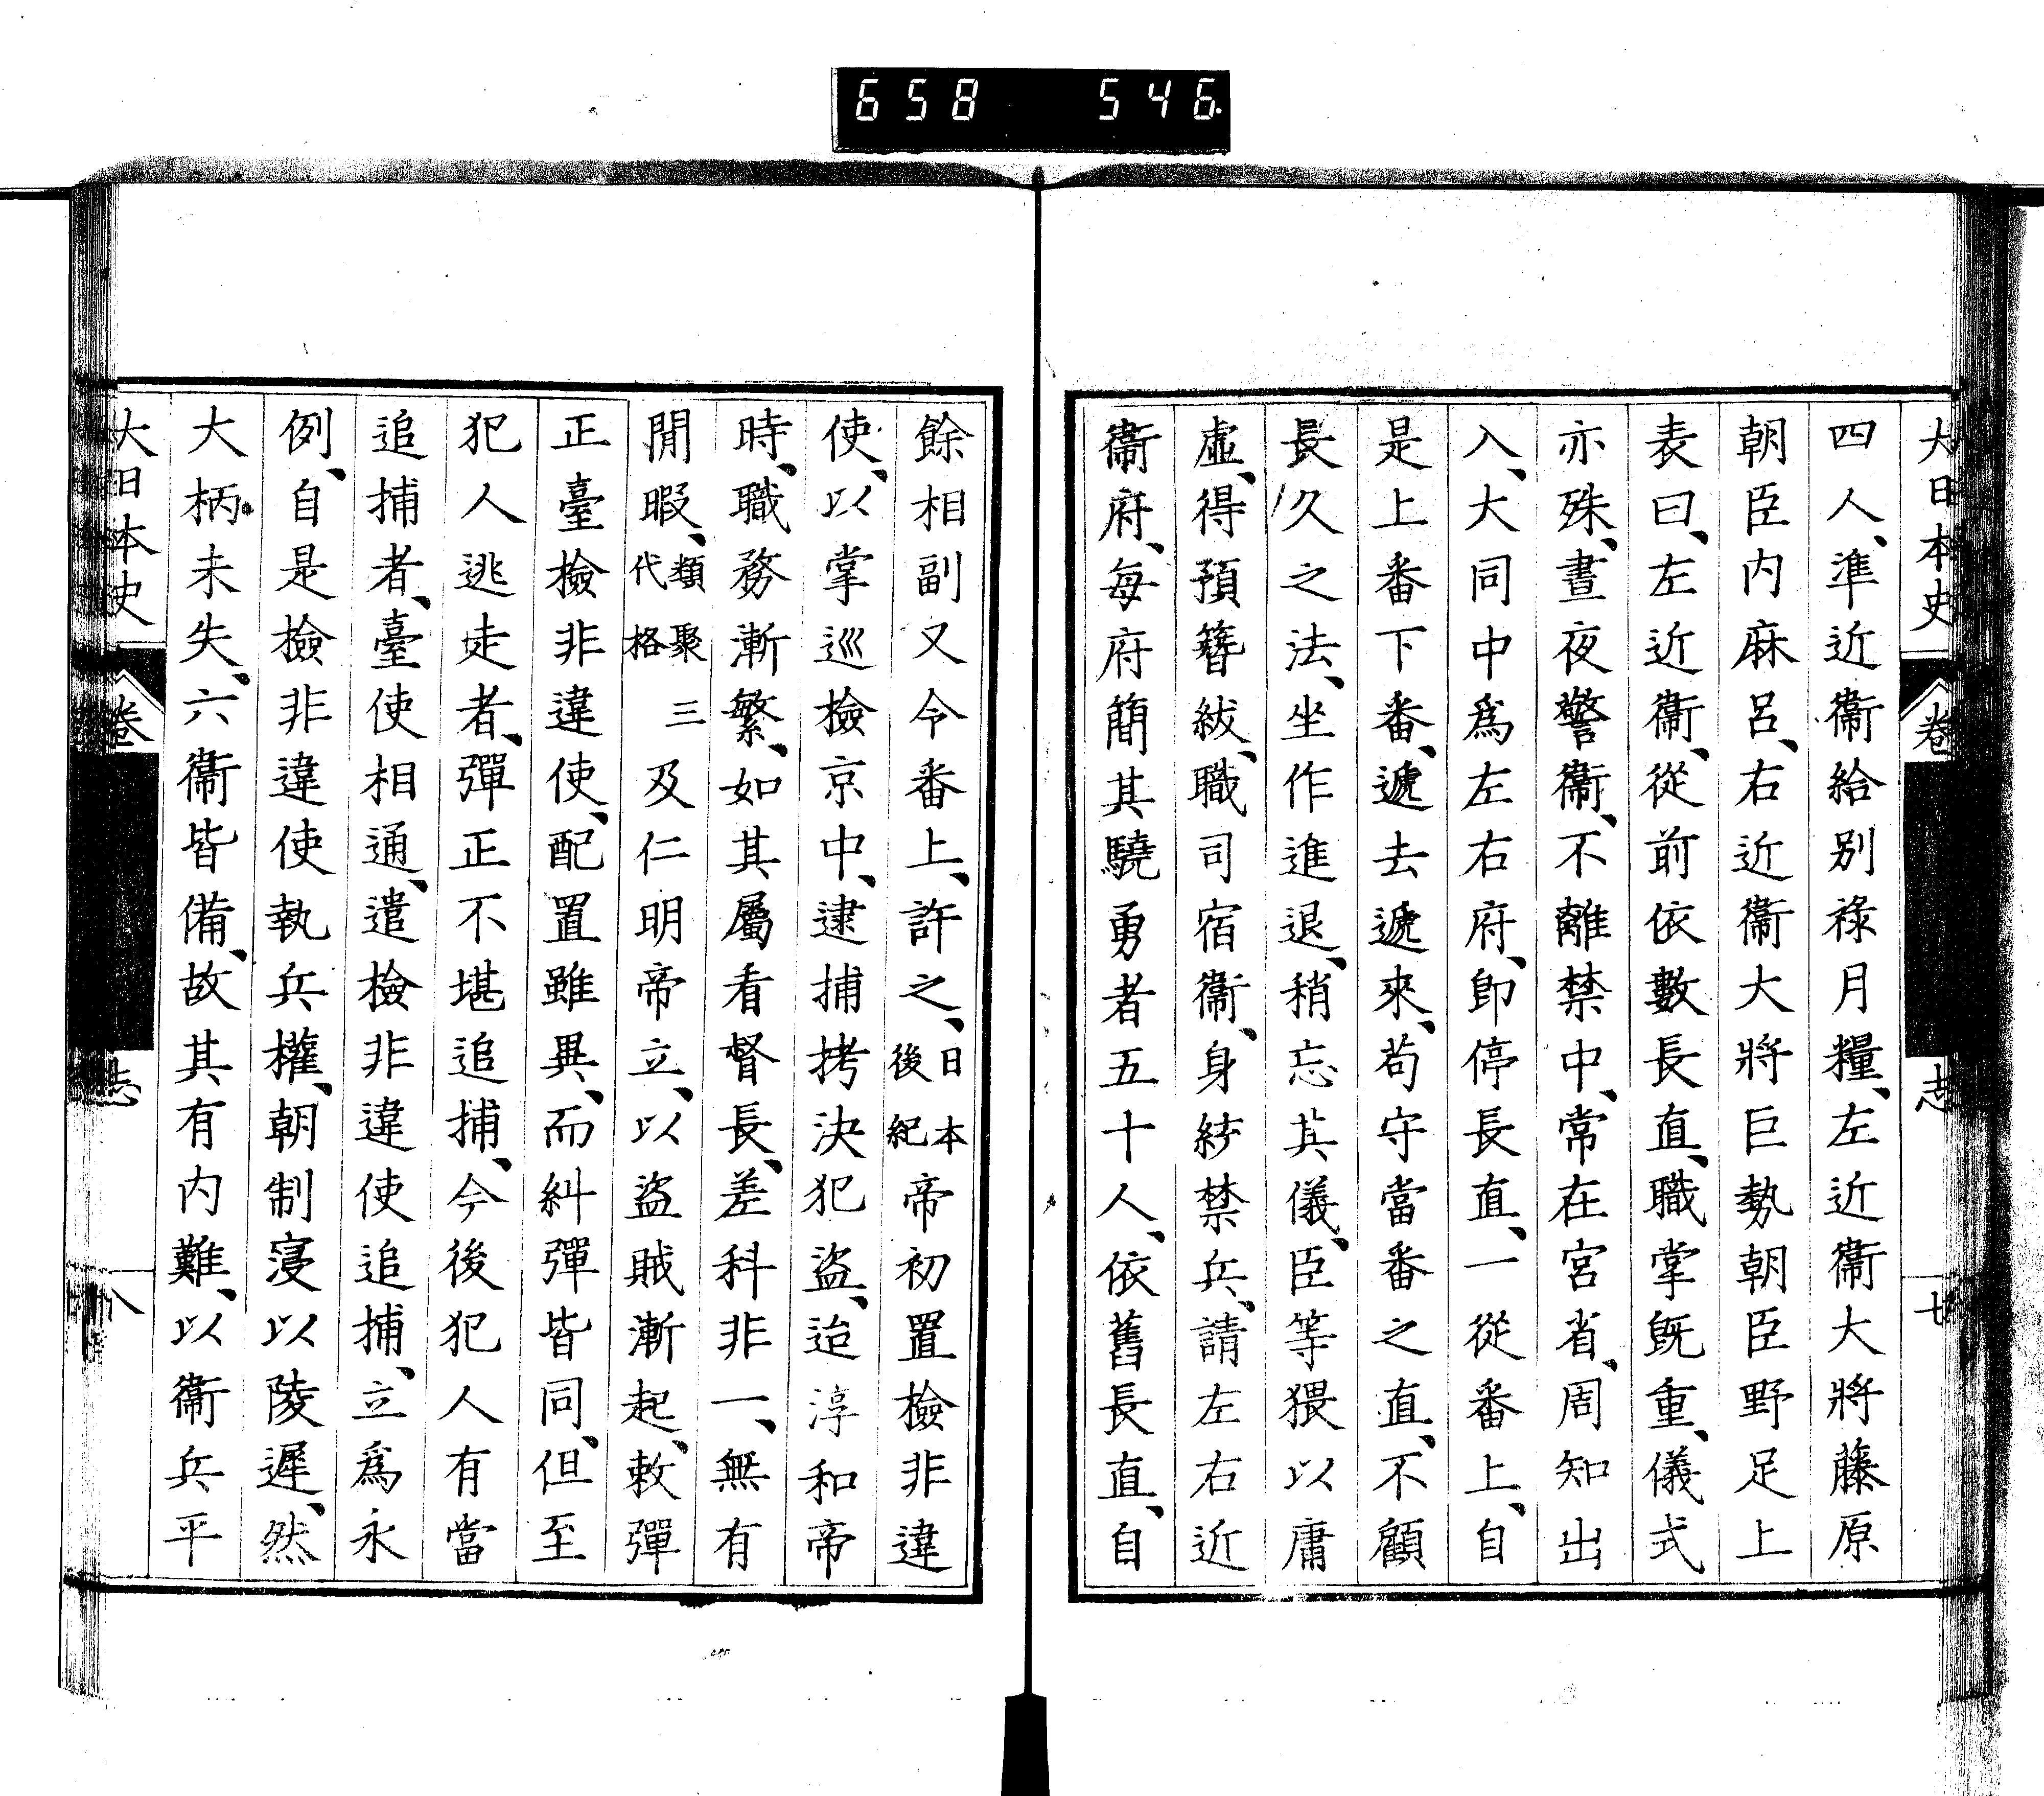 658 546.
大日本史 卷 志 七
四人、準近衞給別祿月糧、左近衞大將藤原
朝臣内麻呂、右近衞大將巨勢朝臣野足上
表曰、左近衞、從前依數長直、職掌既重、儀式
亦殊、晝夜警衞、不離禁中、常在宮省、周知出
入、大同中爲左右府、卽停長直、一從番上、自
是上番下番、遞去遞來、苟守當番之直、不顧
長久之法、坐作進退、稍忘其儀、臣等猥以庸
虛、得預簪紱、職司宿衞、身紆禁兵、請左右近
衞府、每府簡其驍勇者五十人、依舊長直、自
餘相副又令番上、許之、日本後紀帝初置檢非違
使、以掌巡檢京中、逮捕拷決犯盜、迨淳和帝
時、職務漸繁、如其屬看督長、差科非一、無有
閒暇、類聚三代格及仁明帝立、以盜賊漸起、敕彈
正臺檢非違使、配置雖異、而糾彈皆同、但至
犯人逃走者、彈正不堪追捕、今後犯人有當
追捕者、臺使相通、遣檢非違使追捕、立爲永
例、自是檢非違使執兵權、朝制寖以陵遲、然
大柄未失、六衞皆備、故其有内難、以衞兵平
大日本史 卷 志 八